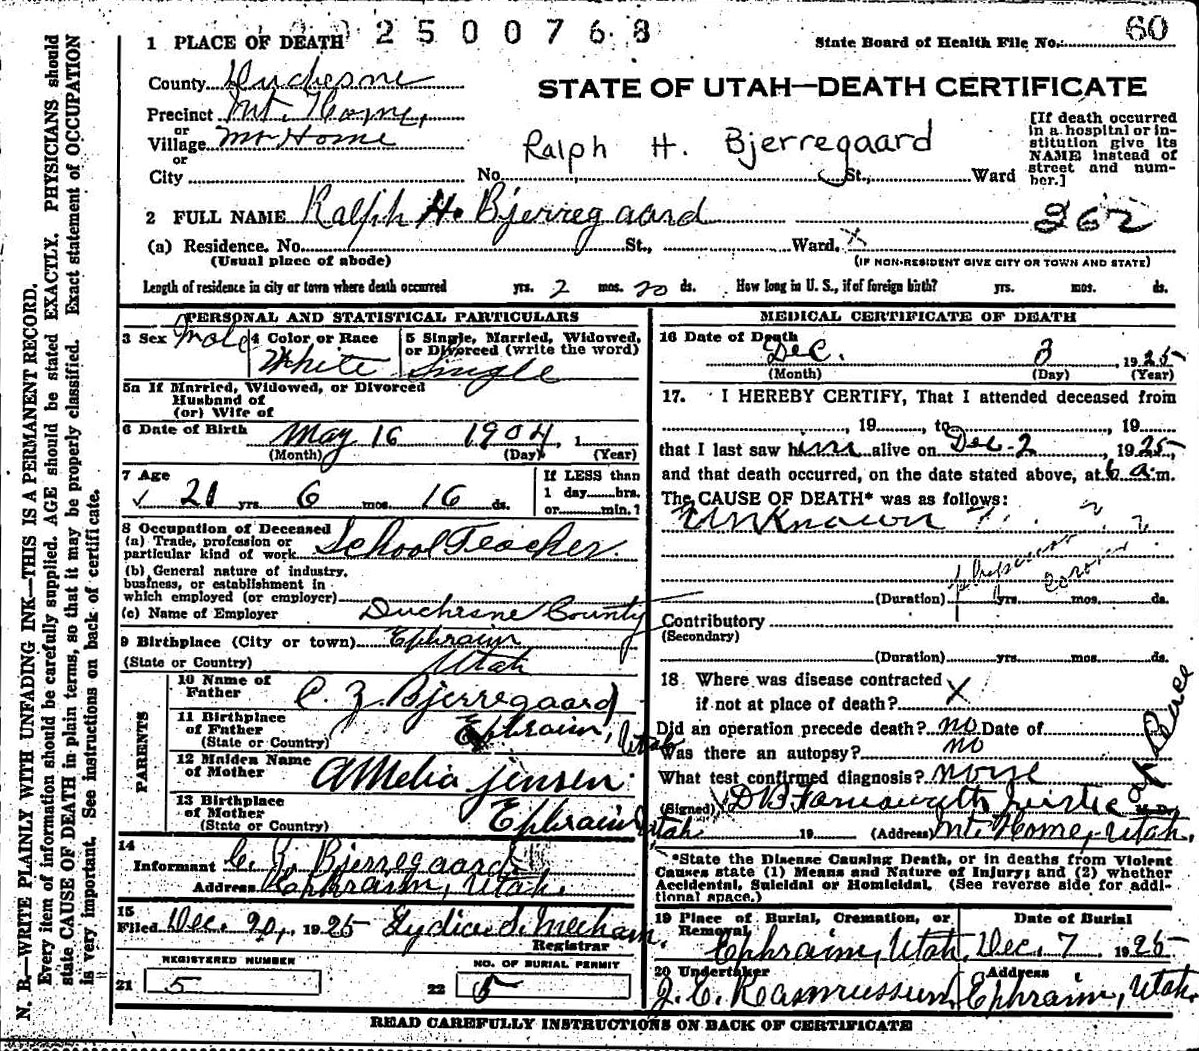 2500768
State Board of Health File No. 60
1 PLACE OF DEATH
County Duchesne
STATE OF UTAH—DEATH CERTIFICATE
Precinct Mt. Home,
or
Village Mt Home
or
City No. St., Ward
Ralph H. Bjerregaard
[If death occurred in a hospital or institution give its NAME instead of street and number.]
2 FULL NAME Ralph H. Bjerregaard
262
(a) Residence. No. St., Ward. X
(Usual place of abode) (IF NON-RESIDENT GIVE CITY OR TOWN AND STATE)
Length of residence in city or town where death occurred yrs. 2 mos. 20 ds. How long in U. S., if of foreign birth? yrs. mos. ds.
PERSONAL AND STATISTICAL PARTICULARS
3 Sex Male 4 Color or Race White 5 Single, Married, Widowed, or Divorced (write the word) Single
5a If Married, Widowed, or Divorced
Husband of
(or) Wife of
6 Date of Birth May 16 1904, 1
(Month) (Day) (Year)
7 Age
21 yrs. 6 mos. 16 ds.
If LESS than
1 day hrs.
or min.?
8 Occupation of Deceased
(a) Trade, profession or
particular kind of work School Teacher.
(b) General nature of industry,
business, or establishment in
which employed (or employer)
(c) Name of Employer Duchesne County
9 Birthplace (City or town) Ephraim
(State or Country) Utah
PARENTS
10 Name of
Father C. Z. Bjerregaard
11 Birthplace
of Father Ephraim, Utah
(State or Country)
12 Maiden Name
of Mother Amelia Jensen
13 Birthplace
of Mother Ephraim Utah
(State or Country)
14
Informant C. Z. Bjerregaard
Address Ephraim, Utah.
15
Filed Dec. 20, 1925 Lydia S. Mecham.
Registrar
REGISTERED NUMBER
21 5
NO. OF BURIAL PERMIT
22 5
MEDICAL CERTIFICATE OF DEATH
16 Date of Death
Dec. 3, 1925
(Month) (Day) (Year)
17. I HEREBY CERTIFY, That I attended deceased from
, 19 , to , 19
that I last saw him alive on Dec-2, 1925,
and that death occurred, on the date stated above, at 6 a.m.
The CAUSE OF DEATH* was as follows:
Unknown
physician
coroner
(Duration) yrs. mos. ds.
Contributory
(Secondary)
(Duration) yrs. mos. ds.
18 Where was disease contracted
if not at place of death? X
Did an operation precede death? no Date of
Was there an autopsy? no
What test confirmed diagnosis? none
(Signed) D B Farnsworth Justice of Peace M.D.
19 (Address) Mt. Home, Utah.
*State the Disease Causing Death, or in deaths from Violent
Causes state (1) Means and Nature of Injury; and (2) whether
Accidental, Suicidal or Homicidal. (See reverse side for addi-
tional space.)
19 Place of Burial, Cremation, or
Removal
Date of Burial
Ephraim, Utah. Dec. 7 1925
20 Undertaker Address
Ephraim, Utah.
READ CAREFULLY INSTRUCTIONS ON BACK OF CERTIFICATE
N. B.—WRITE PLAINLY WITH UNFADING INK—THIS IS A PERMANENT RECORD.
Every item of information should be carefully supplied. AGE should be stated EXACTLY. PHYSICIANS should
state CAUSE OF DEATH in plain terms, so that it may be properly classified. Exact statement of OCCUPATION
is very important. See instructions on back of certificate.